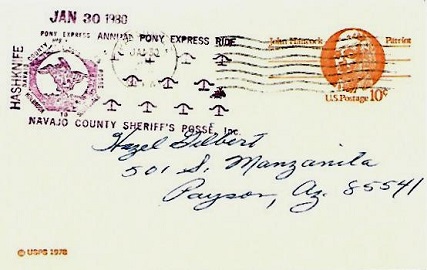 JAN 30 1980
PONY EXPRESS ANNUAL PONY EXPRESS RIDE
HASHKNIFE
COUNTY
NAVAJO COUNTY SHERIFF'S POSSE, Inc.
John Hancock Patriot
U.S. Postage 10¢
Hazel Gilbert
501 S. Manzanita
Payson, Az. 85541
© USPS 1978